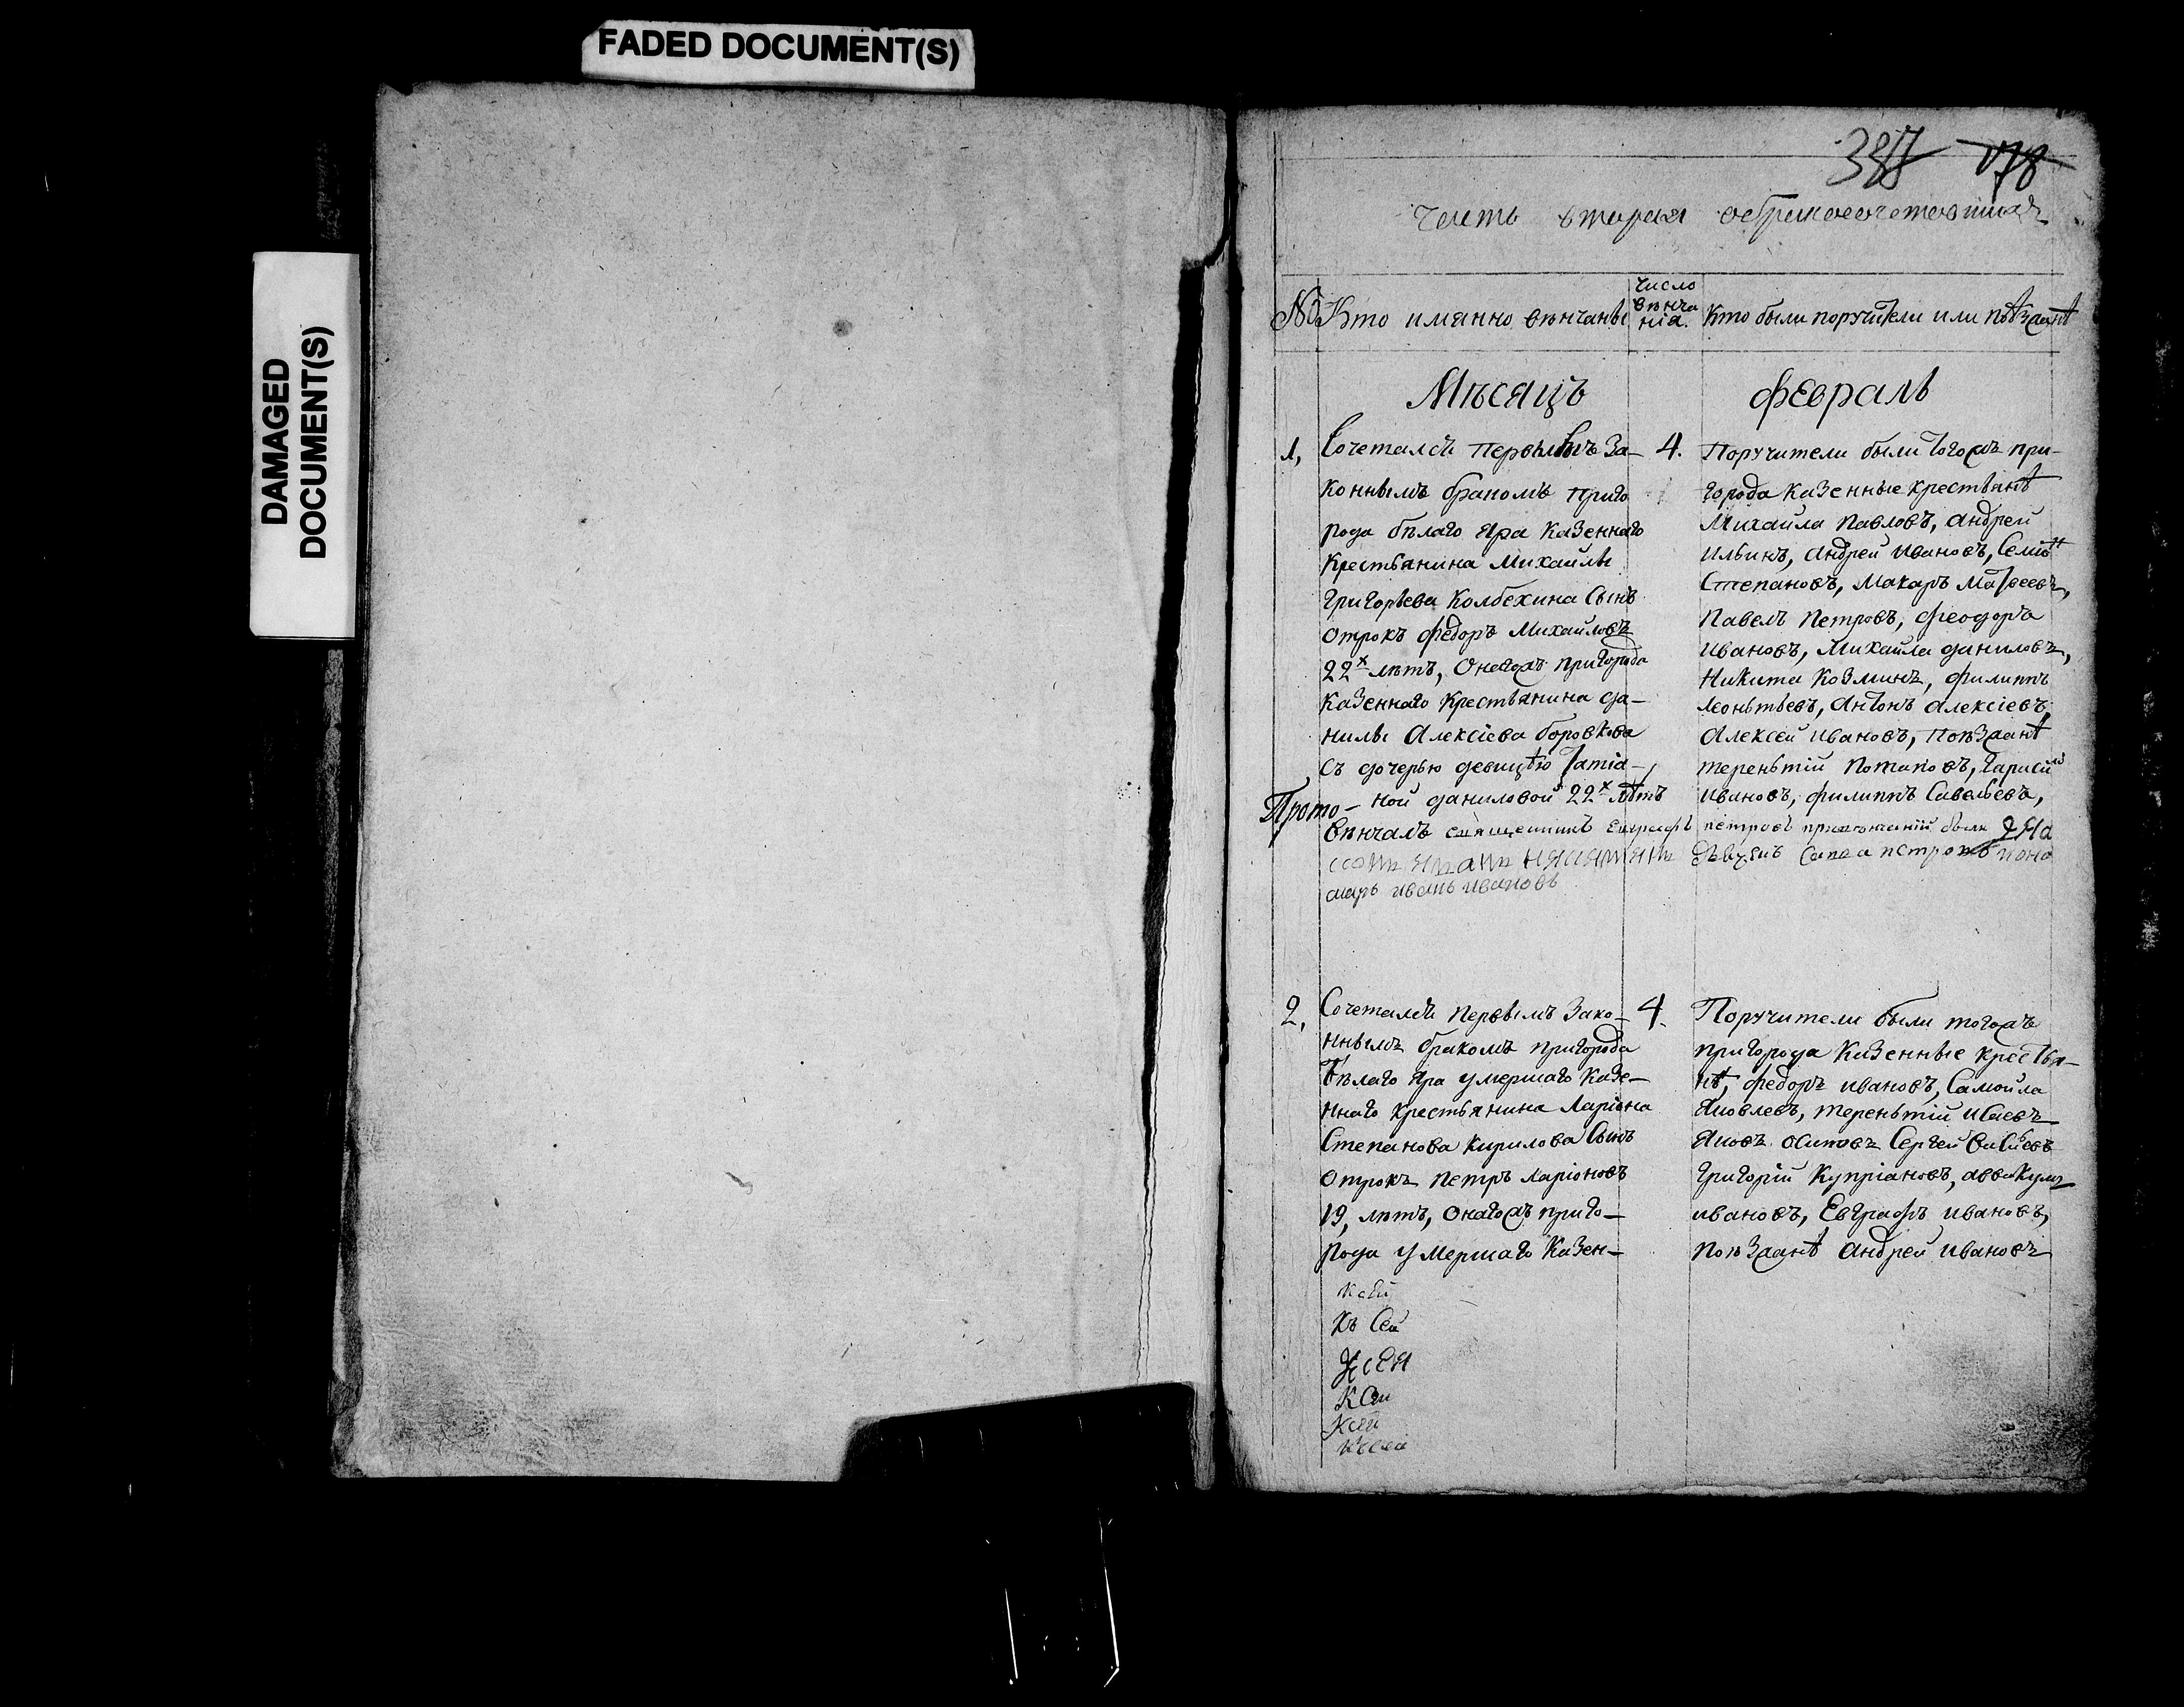 FADED DOCUMENT(S)
DAMAGED
DOCUMENT(S)
387 178
часть вторая о бракосочетавшихся
№ Кто имянно вѣнчаны
число
вѣнча
нія.
Кто были поручители или поѣзданѣ
Мѣсяцъ
февраль
1,
Сочетался Первымъ За-
коннымъ бракомъ приго
рода бѣлаго яра казеннаго
крестьянина Михайлы
Григорьева Колбехина Сынъ
отрокъ федоръ Михайловъ
22х лѣтъ, Онагожъ пригорода
казеннаго крестьянина да-
нилы Алексіева боровкова
съ дочерью девицѣю Татіа-
ной даниловой 22х лѣтъ
4.
Поручители были тогожъ при-
города казенные крестьянѣ
Михайла павловъ, андрей
ильинъ, андрей ивановъ, Семіонъ
Степановъ, Макаръ Матвеевъ,
павелъ петровъ, феодоръ
ивановъ, Михайла даниловъ,
Никита Козминъ, филиппъ
леонтьевъ, антонъ алексіевъ
алексей ивановъ, поѣзданѣ
терентьій потаповъ,
ивановъ, филиппъ Савельевъ,
Прото-
Вѣнчалъ священникъ Евграфъ петровъ при вѣнчаніи были
Савва петровъ поно
марь иванъ ивановъ
2,
Сочетался первымъ зако-
ннымъ бракомъ пригорода
бѣлаго яра умершаго казе-
ннаго крестьянина Ларіона
Степанова Кирилова Сынъ
отрокъ петръ Ларіоновъ
19, лѣтъ, онагожъ приго-
рода умершаго казен-
4.
Поручители были тогожъ
пригорода казенные крестья-
нѣ, федоръ ивановъ, Самойла
яковлевъ, терентьій исаевъ
яковъ осиповъ Сергей
григорій Купріановъ, аввакумъ
ивановъ, Евграфъ ивановъ,
поѣзданѣ андрей ивановъ
к сей
Къ Сей